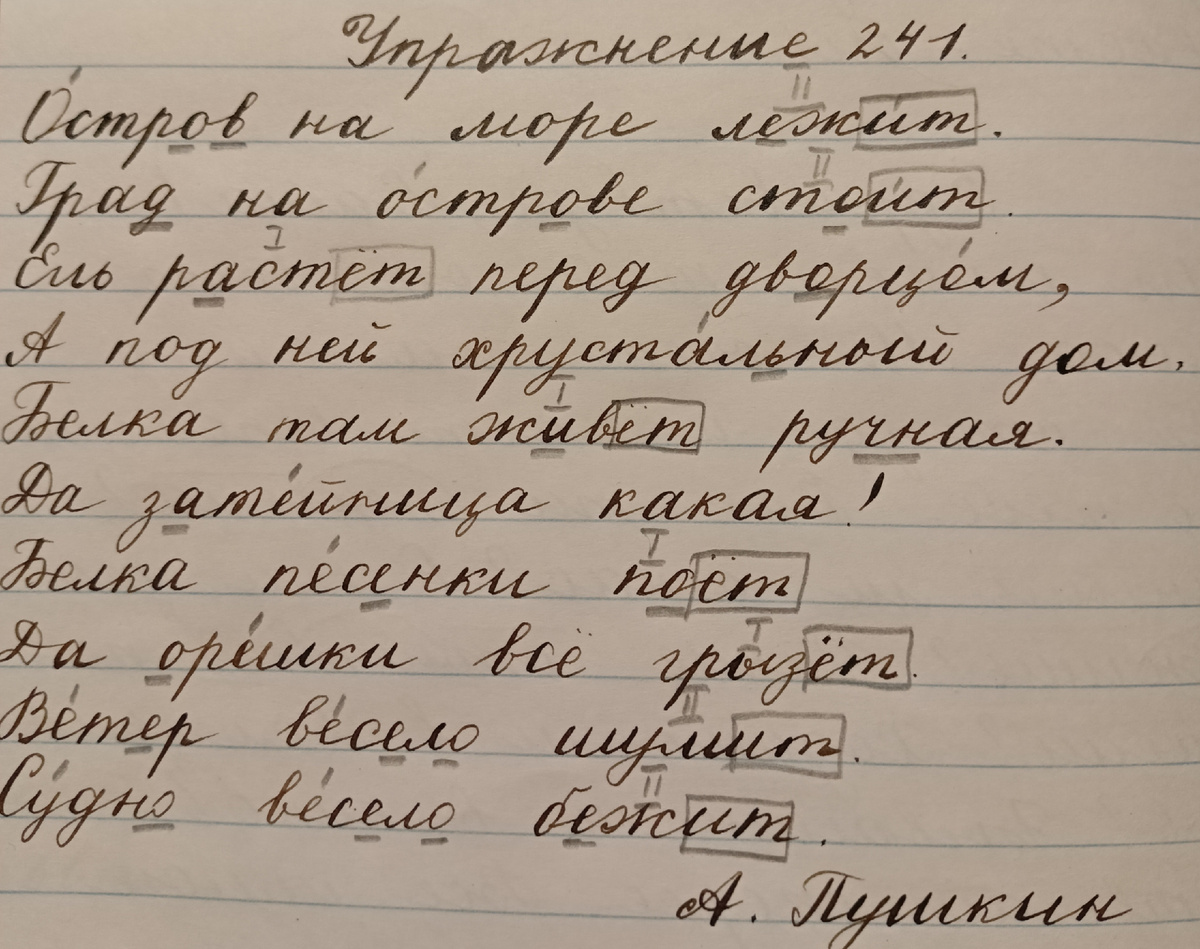 Упражнение 241.
О́стров на море лежи́т.
Град на о́строве стои́т.
Ель растёт перед дворцо́м,
А под ней хруста́льный дом.
Белка там живёт ручная.
Да зате́йница какая!
Белка пе́сенки поёт
Да оре́шки всё грызёт.
Ве́тер ве́село шумит.
Су́дно ве́село бежит.
А. Пушкин